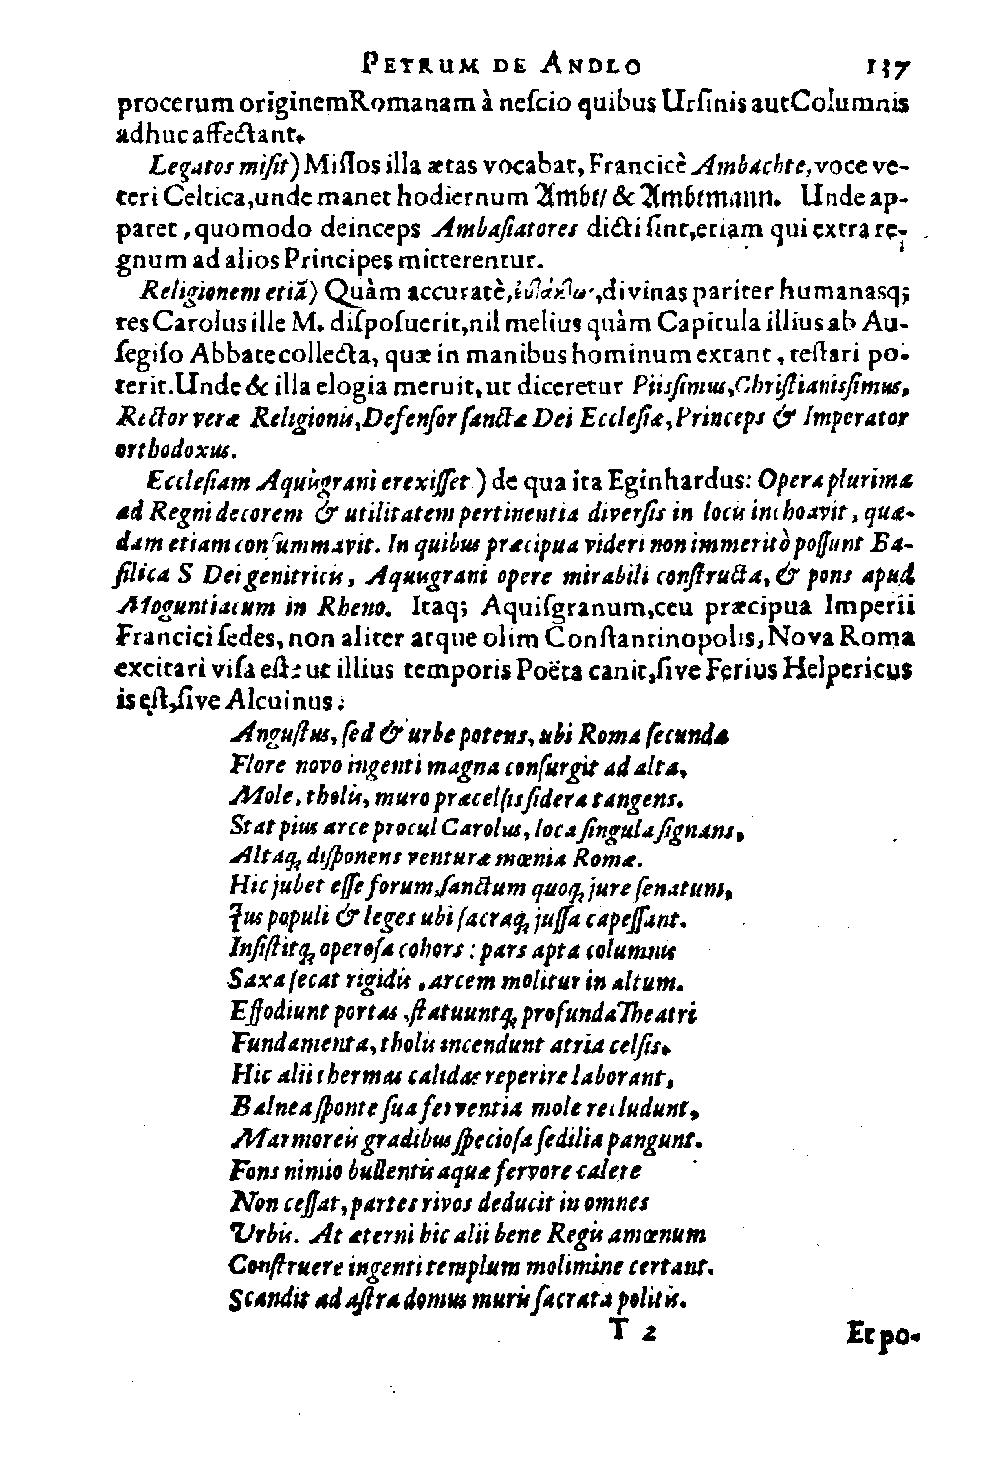 PETRUM DE ANDLO 137
procerum originem Romanam à neſcio quibus Urſinis aut Columnis
adhuc affectant.
Legatos miſit) Miſſos illa ætas vocabat, Francicè Ambachte, voce ve-
teri Celtica, unde manet hodiernum Ambt/ & Ambtmann. Unde ap-
paret, quomodo deinceps Ambaſiatores dicti ſint, etiam qui extra re-
gnum ad alios Principes mitterentur.
Religionem etiã) Quàm accuratè, divinas pariter humanasq;
res Carolus ille M. diſpoſuerit, nil melius quàm Capitula illius ab An-
ſegiſo Abbate collecta, quæ in manibus hominum extant, teſtari po-
terit. Unde & illa elogia meruit, ut diceretur Piisſimus, Chriſtianisſimus,
Rector veræ Religionis, Defenſor ſanctæ Dei Eccleſiæ, Princeps & Imperator
orthodoxus.
Eccleſiam Aquisgrani erexiſſet) de qua ita Eginhardus: Opera plurima
ad Regni decorem & utilitatem pertinentia diverſis in locis inchoavit, quæ-
dam etiam conſummavit. In quibus præcipua videri non immeritò poſſunt Ba-
ſilica S Dei genitricis, Aquisgrani opere mirabili conſtructa, & pons apud
Moguntiacum in Rheno. Itaq; Aquiſgranum, ceu præcipua Imperii
Francici ſedes, non aliter atque olim Conſtantinopolis, Nova Roma
excitari viſa eſt: ut illius temporis Poëta canit, ſive Ferius Helpericus
is eſt, ſive Alcuinus:
Anguſtus, ſed & urbe potens, ubi Roma ſecunda
Flore novo ingenti magna conſurgit ad alta,
Mole, tholis, muro præcelſis ſidera tangens.
Stat pius arce procul Carolus, loca ſingula ſignans,
Altaq; diſponens venturæ mœnia Romæ.
Hic jubet eſſe forum, ſanctum quoq; jure ſenatum,
Jus populi & leges ubi ſacraq; juſſa capeſſant.
Inſiſtitq; operoſa cohors: pars apta columnis
Saxa ſecat rigidis, arcem molitur in altum.
Effodiunt portas, ſtatuuntq; profunda Theatri
Fundamenta, tholis incendunt atria celſis.
Hic alii thermas calidas reperire laborant,
Balnea ſponte ſua ferventia mole recludunt,
Marmoreis gradibus ſpecioſa ſedilia pangunt.
Fons nimio bullentis aquæ fervore calere
Non ceſſat, partes rivos deducit in omnes
Urbis. At æterni hic alii bene Regis amœnum
Conſtruere ingenti templum molimine certant.
Scandit ad aſtra domus muris ſacrata politis.
T 2 Et po-